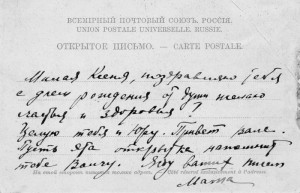 ВСЕМІРНЫЙ ПОЧТОВЫЙ СОЮЗЪ, РОССІЯ.
UNION POSTALE UNIVERSELLE. RUSSIE.
ОТКРЫТОЕ ПИСЬМО. — CARTE POSTALE.
Милая Ксеня, поздравляю тебя
с днем рождения от души желаю
счастья и здоровья!
Целую тебя и Юру. Привет
Пусть эта открытка напомнит
тебе Жду ваших писем